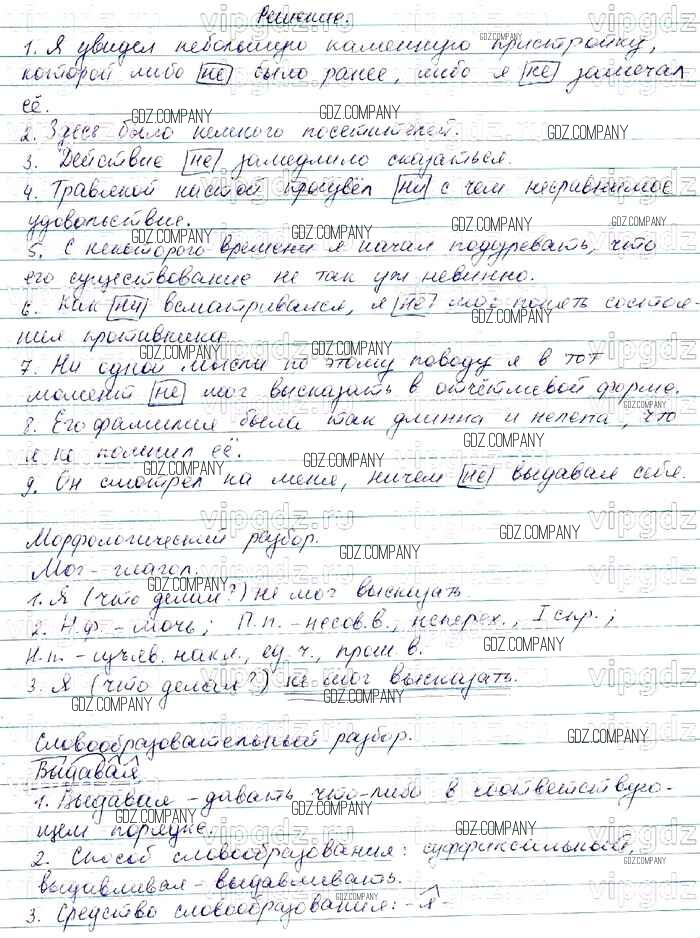 Решение.
1. Я увидел небольшую каменную пристройку,
которой либо не было ранее, либо я не замечал
её.
2. Здесь было немного посетителей.
3. Действие не замедлило сказаться.
4. Травлокой кистой произвёл ни с чем несравнимое
удовольствие.
5. С некоторого времени я начал подозревать, что
его существование не так уж невинно.
6. Как ни всматривался, я не мог понять состоя-
ния противника
7. Ни одной мысли по этому поводу я в тот
момент не мог высказать в отчётливой форме.
8. Его фамилия была так длинна и нелепа, что
я не помнил её.
9. Он смотрел на меня, ничем не выдавая себя.
Морфологический разбор.
Мог - глагол.
1. Я (что делал?) не мог высказать.
2. Н.ф. - мочь; П.п. - несов.в., неперех., I спр.;
Н.п. - изъяв. накл., ед.ч., прош.в.
3. Я (что делал?) не мог высказать.
Словообразовательный разбор.
Выдавая
1. Выдавая - давать что-либо в соответствую-
щем порядке.
2. Способ словообразования: суффиксальный,
- выдавливать.
3. Средство словообразования: -я-
GDZ.COMPANY
vipgdz.ru